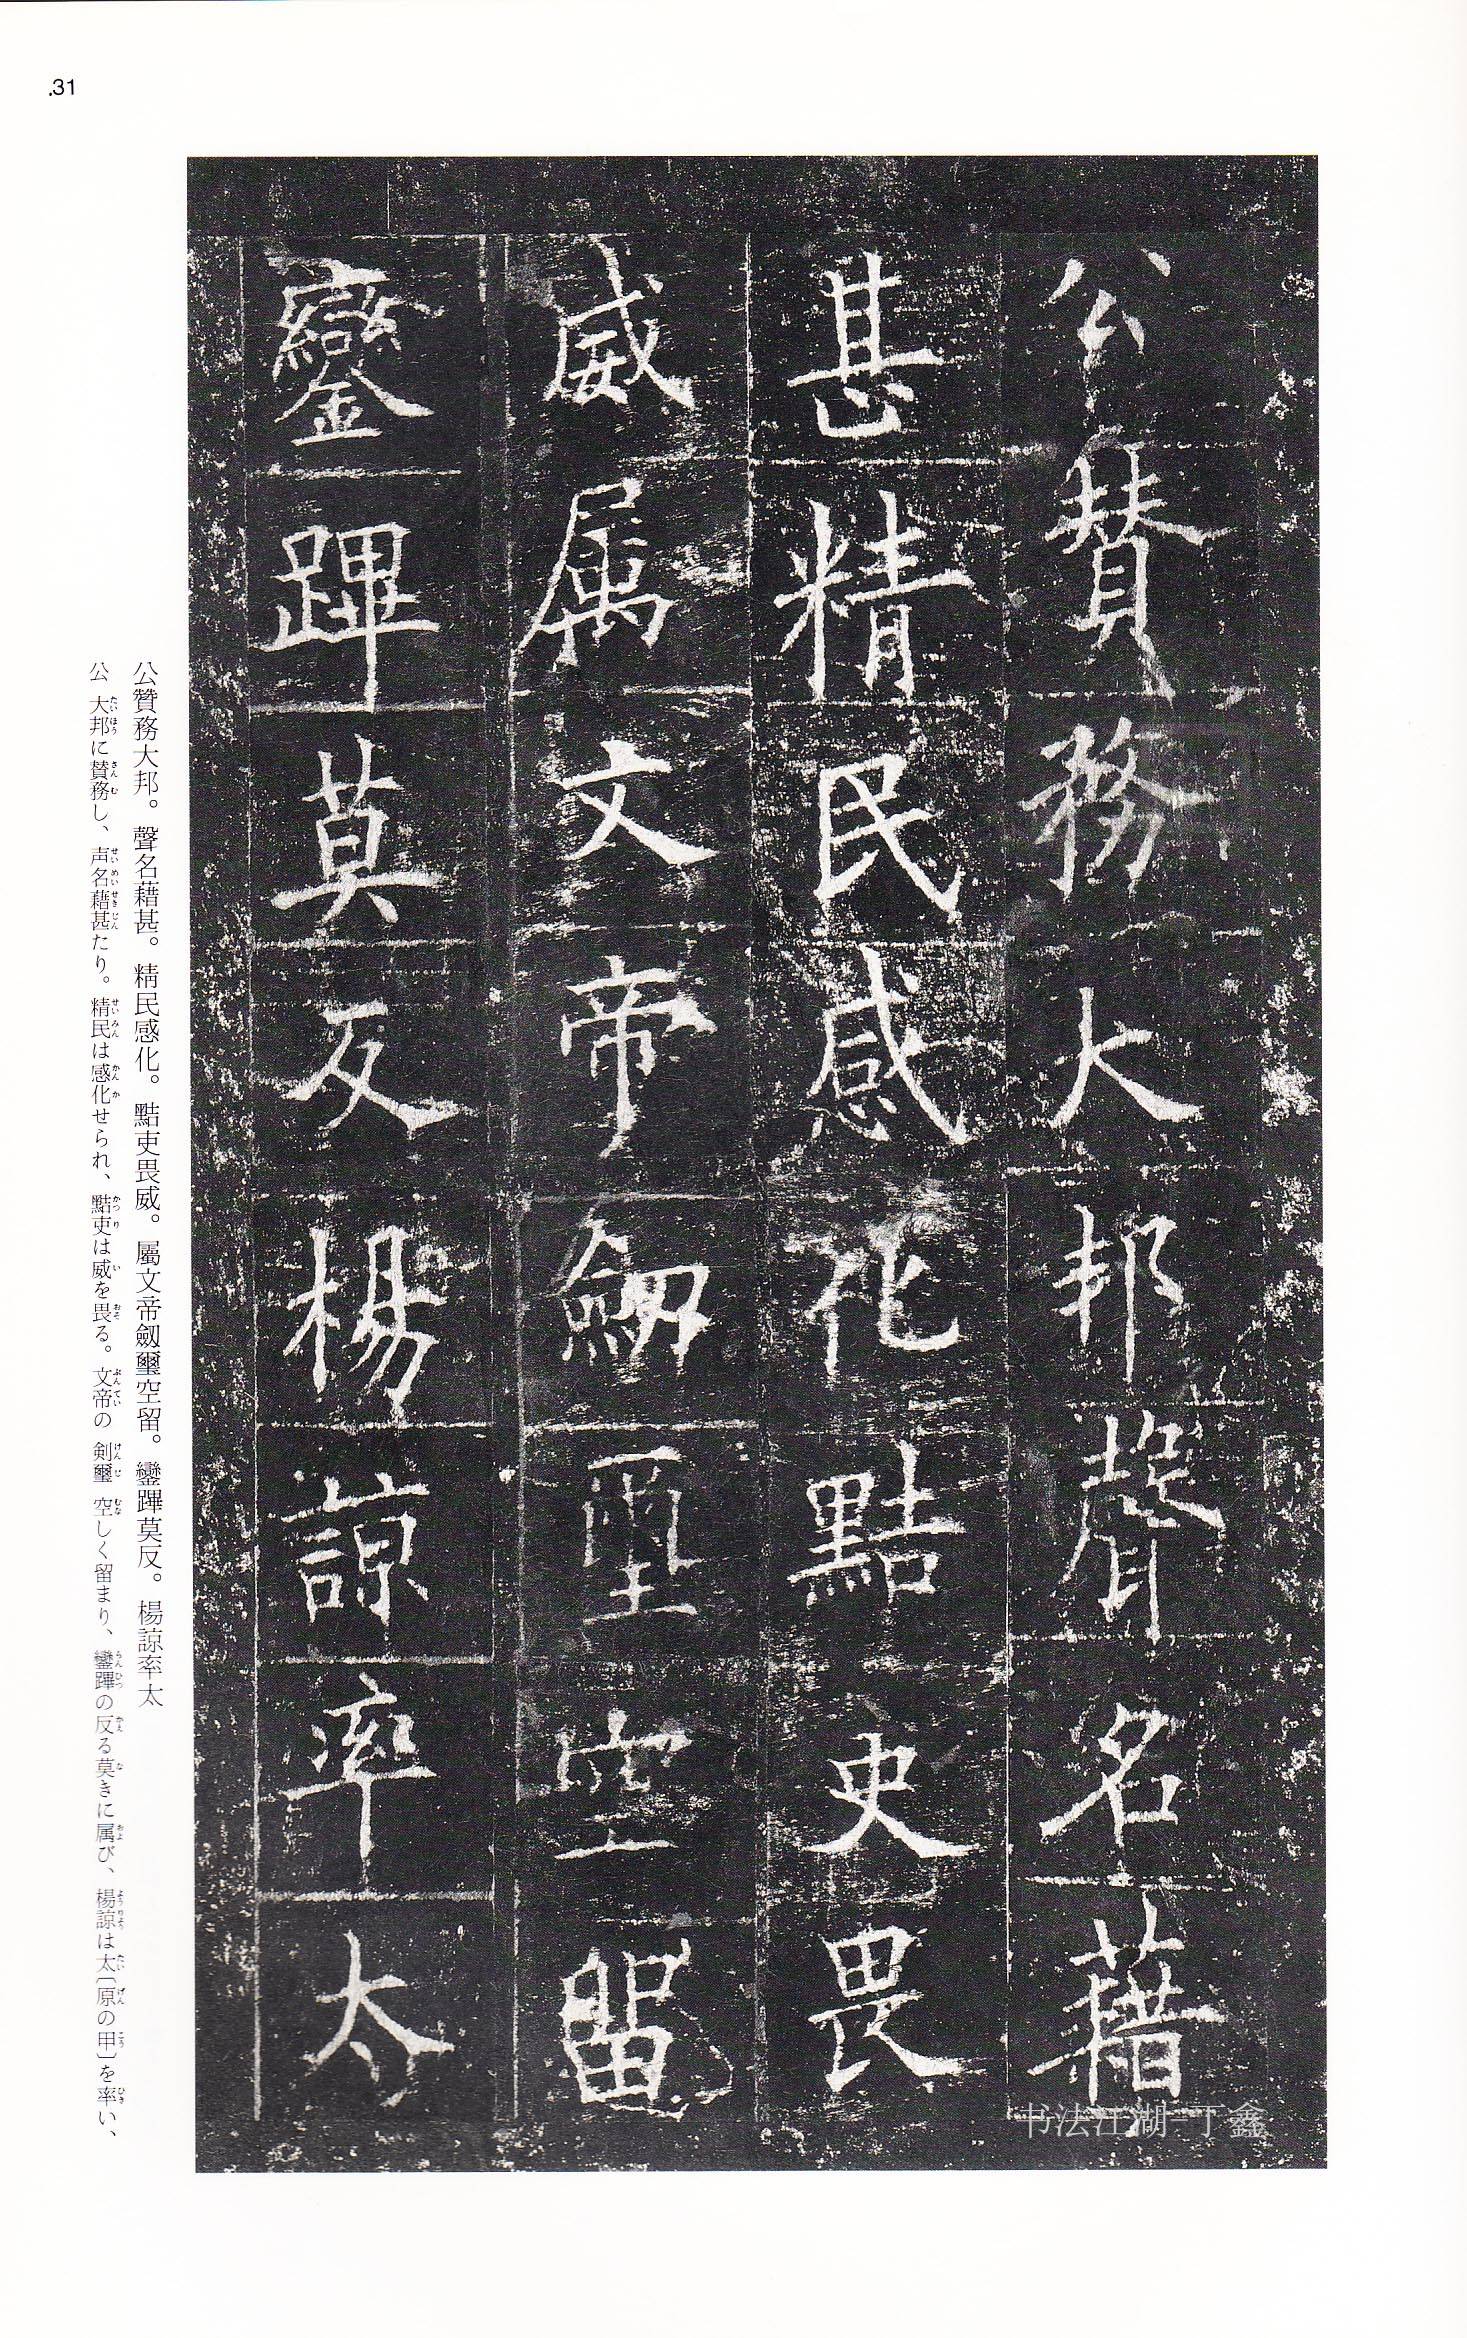 .31
公賛務大邦聲名藉
甚精民感化黠吏畏
威属文帝劒璽空留
鑾蹕莫反楊諒率太
公贊務大邦。聲名藉甚。精民感化。黠吏畏威。屬文帝劔璽空留。鑾蹕莫反。楊諒率太
公 大邦に賛務し、声名藉甚たり。精民は感化せられ、黠吏は威を畏る。文帝の 剣璽 空しく留まり、鑾蹕の反る莫きに属び、楊諒は太〔原の甲〕を率い、
书法江湖-丁鑫